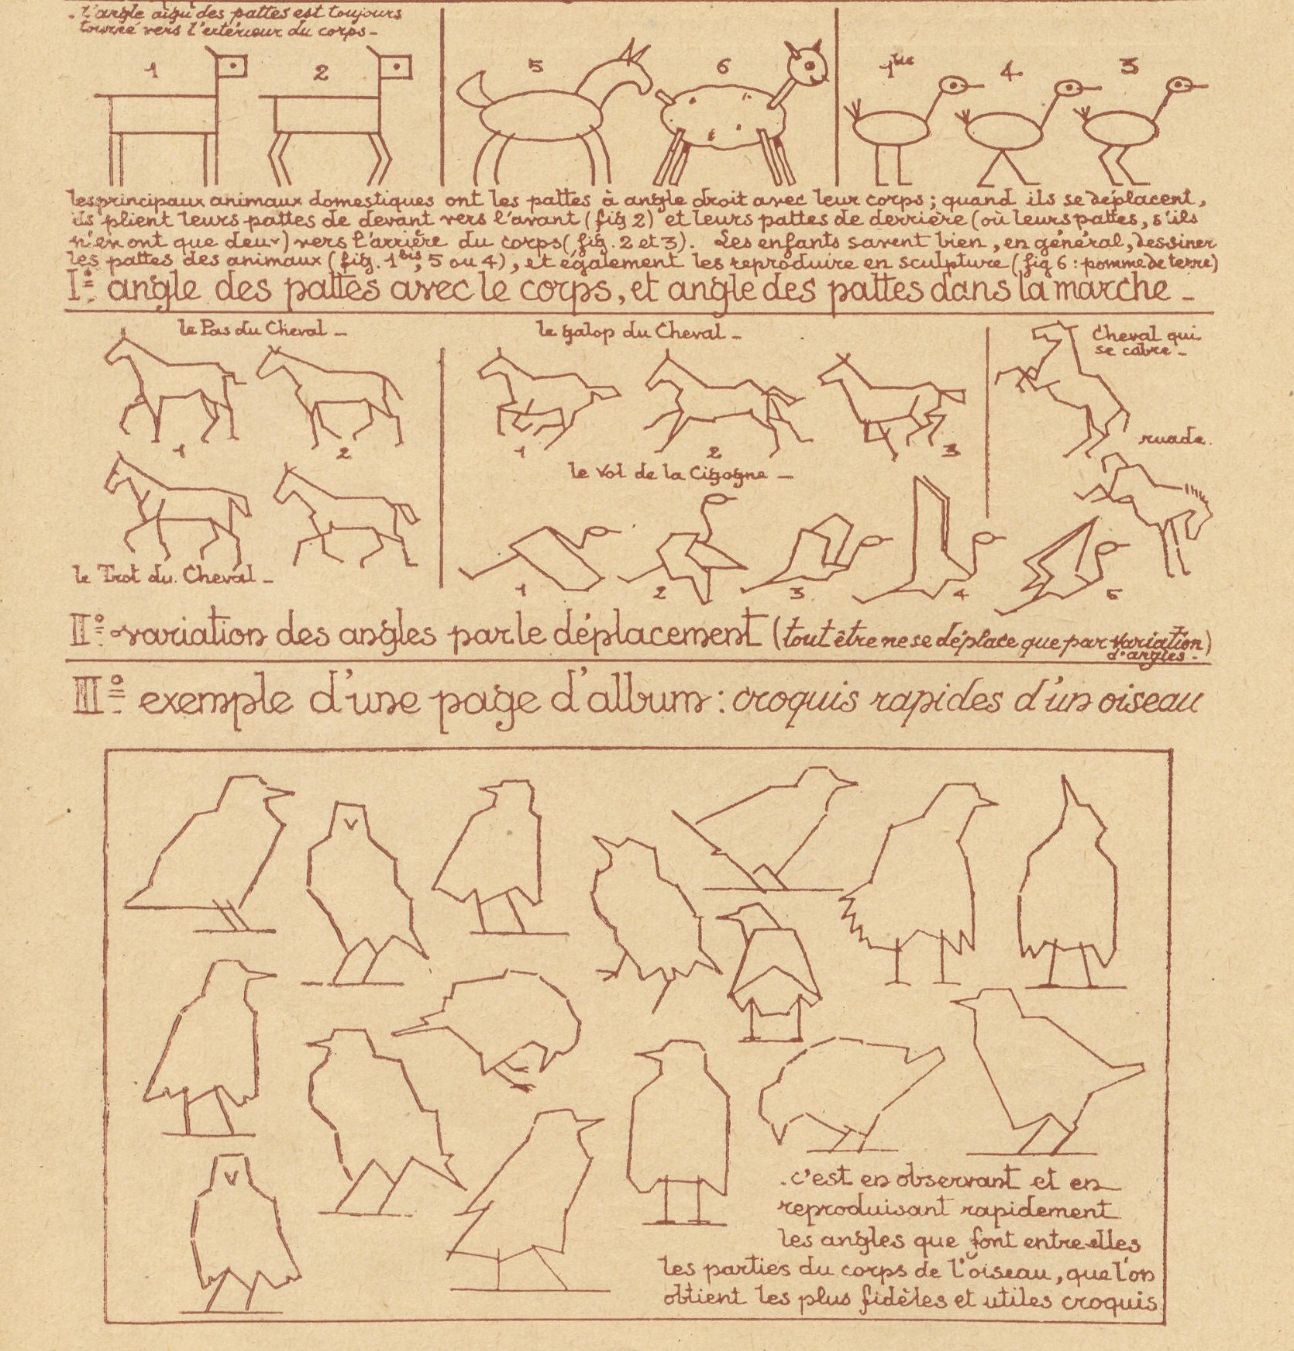 . L'angle aigu des pattes est toujours
tourné vers l'extérieur du corps -
1
2
5
6
1bis
4
3
les principaux animaux domestiques ont les pattes à angle droit avec leur corps ; quand ils se déplacent,
ils plient leurs pattes de devant vers l'avant (fig 2) et leurs pattes de derrière (où leurs pattes, s'ils
n'en ont que deux) vers l'arrière du corps (fig. 2 et 3). Les enfants savent bien, en général, dessiner
les pattes des animaux (fig. 1bis, 5 ou 4), et également les reproduire en sculpture (fig 6 : pomme de terre)
I° angle des pattes avec le corps, et angle des pattes dans la marche -
le Pas du Cheval -
1
2
le Trot du Cheval -
le galop du Cheval -
1
2
3
le Vol de la Cigogne -
1
2
3
4
5
Cheval qui
se cabre -
ruade.
II° variation des angles par le déplacement (tout être ne se déplace que par variation
d'angles -)
III° exemple d'une page d'album : croquis rapides d'un oiseau
. c'est en observant et en
reproduisant rapidement
les angles que font entre elles
les parties du corps de l'oiseau, que l'on
obtient les plus fidèles et utiles croquis